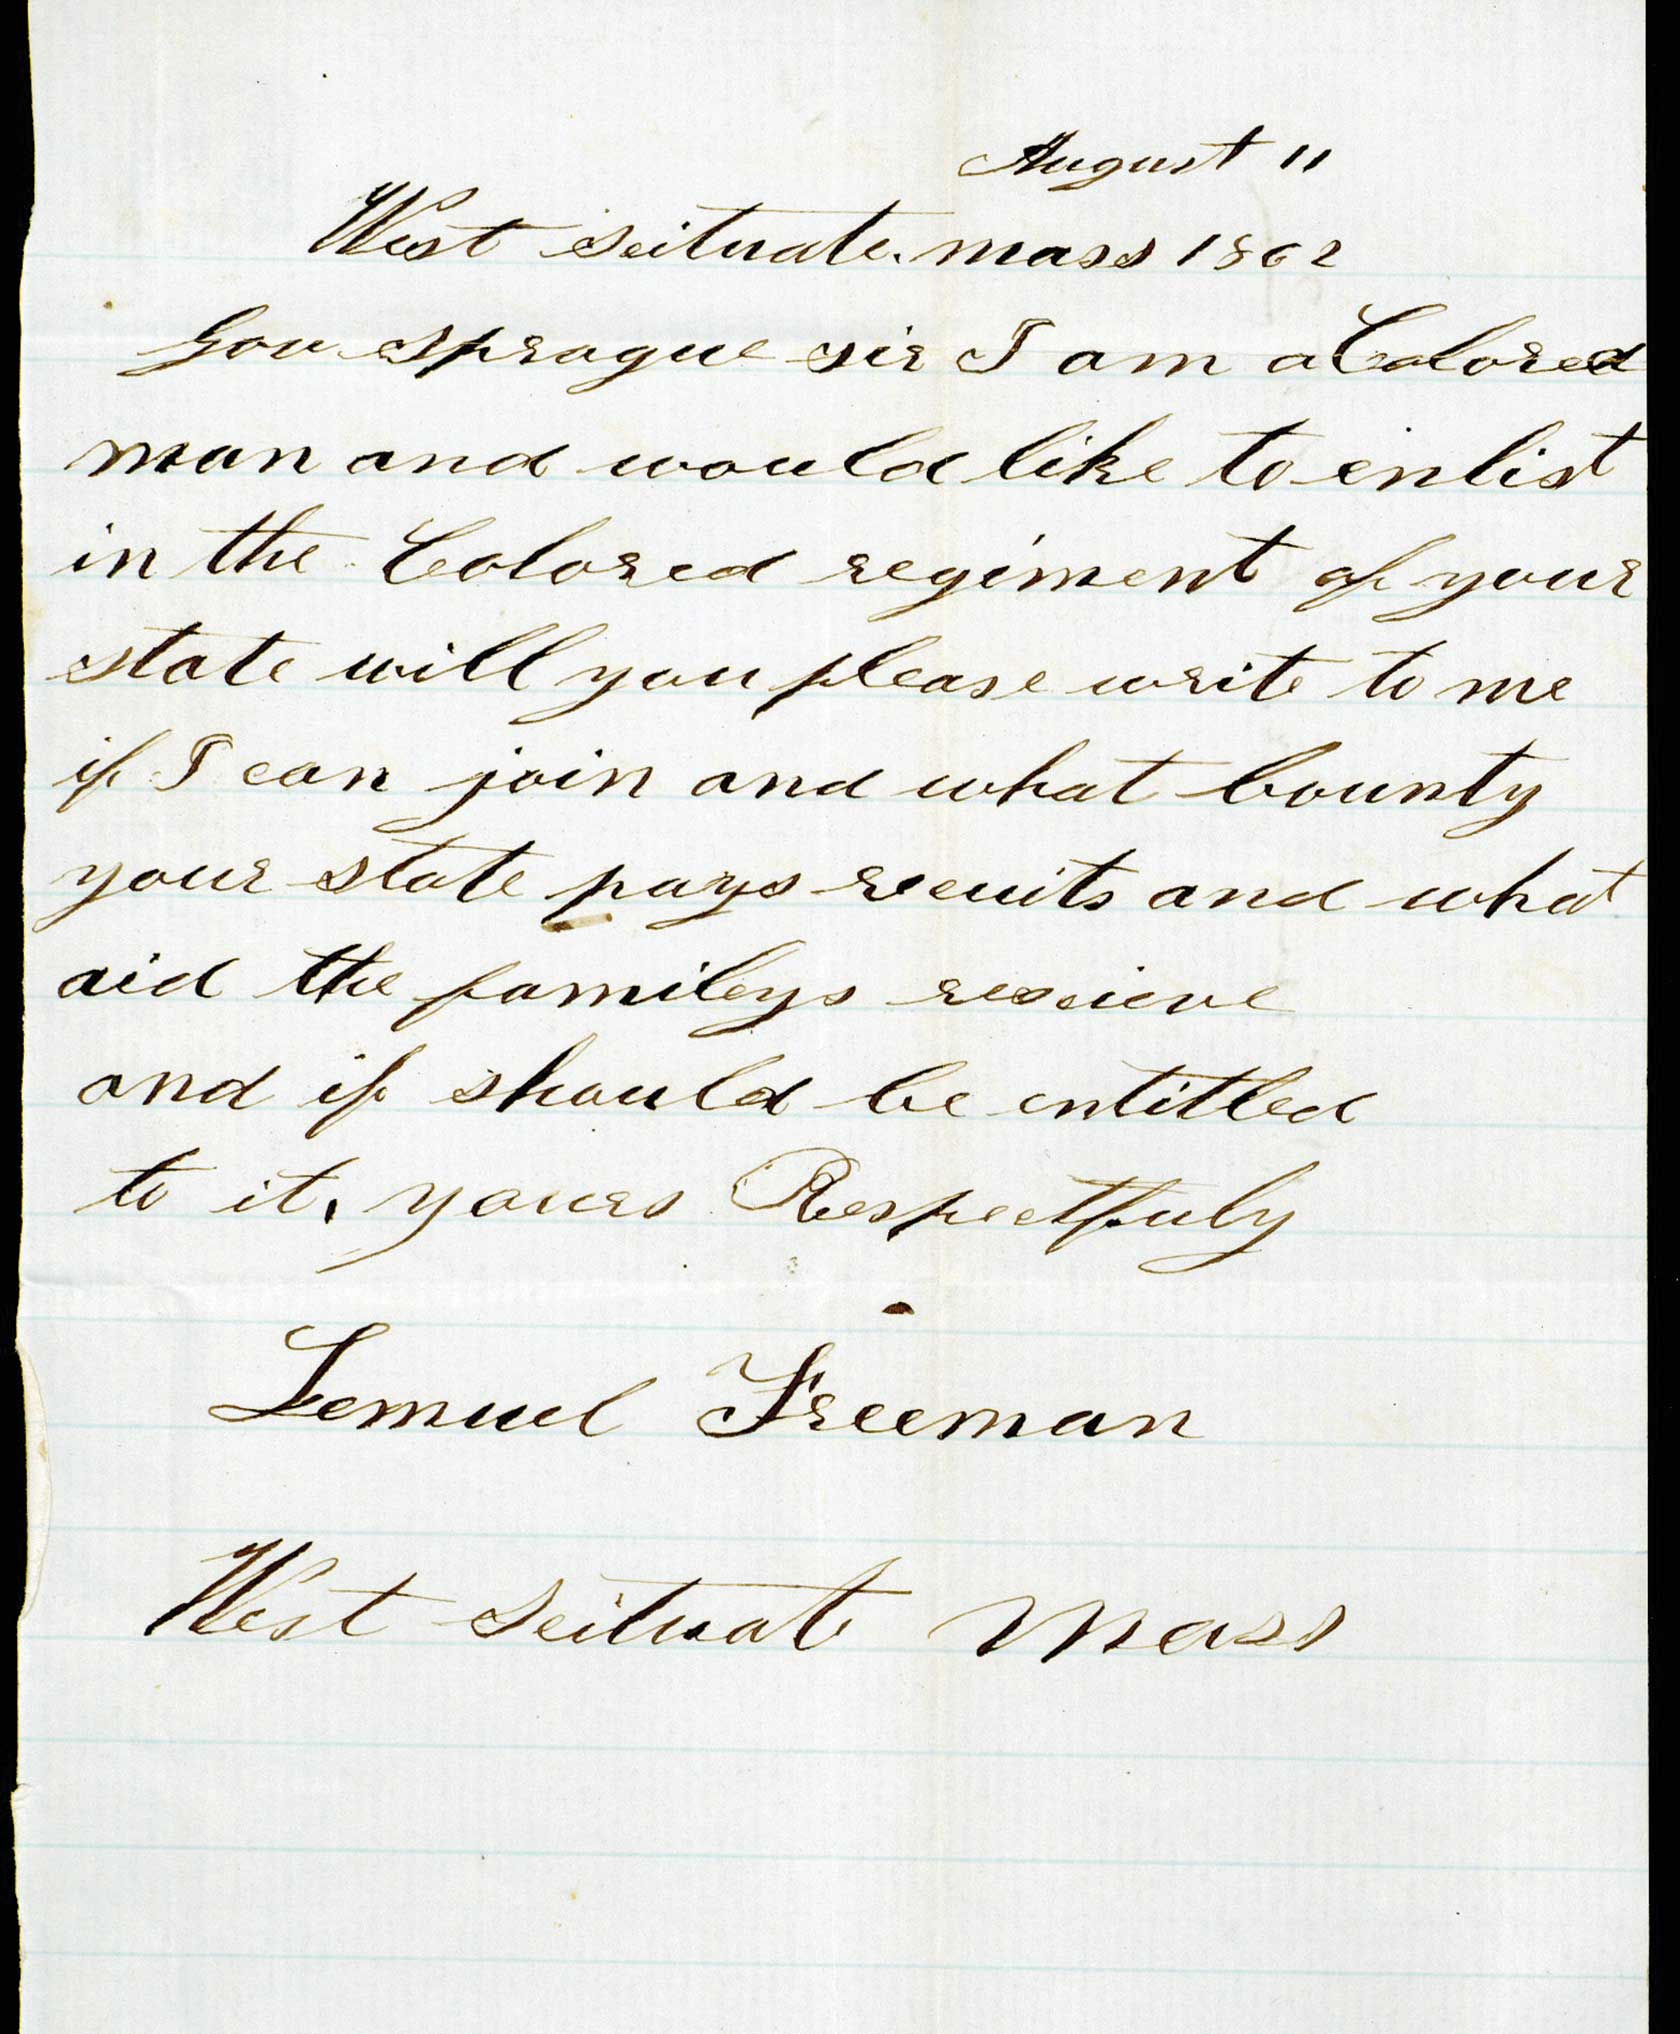 August 11
West Scituate. mass 1862
Gov Sprague sir I am a Colored
man and would like to enlist
in the Colored regiment of your
state will you please write to me
if I can join and what bounty
your state pays recuits and what
aid the familys recieve
and if should be entitled
to it. yours Respectfuly
Lemuel Freeman
West Scituate Mass